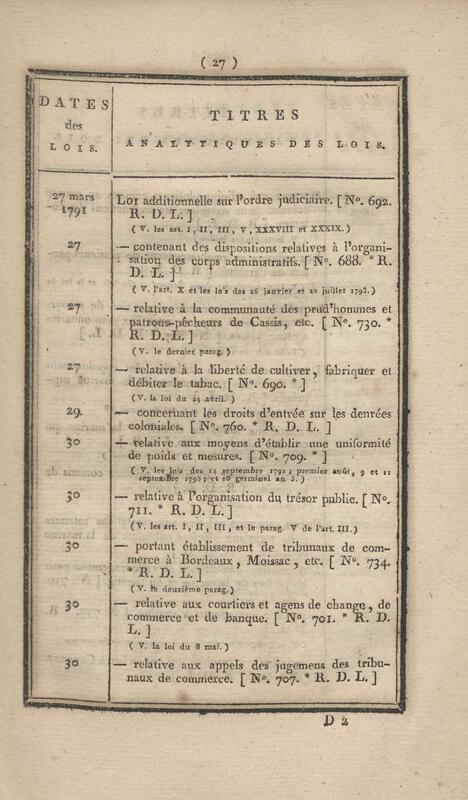 ( 27 )
DATES
des
LOIS.
TITRES
ANALYTIQUES DES LOIS.
27 mars Loi additionnelle sur l'ordre judiciaire. [ Nº. 692.
1791 R. D. L. ]
( V. les art. I, II, III, V, XXXVIII et XXXIX. )
27 — contenant des dispositions relatives à l'organi-
sation des corps administratifs. [ Nº. 688. * R.
D. L. ]
( V. l'art. X et les lois des 26 janvier et 20 juillet 1793. )
27 — relative à la communauté des prud'hommes et
patrons-pêcheurs de Cassis, etc. [ Nº. 730. *
R. D. L. ]
( V. le dernier parag. )
27 — relative à la liberté de cultiver, fabriquer et
débiter le tabac. [ Nº. 690. * ]
( V. la loi du 24 avril. )
29. — concernant les droits d'entrée sur les denrées
coloniales. [ Nº. 760. * R. D. L. ]
30 — relative aux moyens d'établir une uniformité
de poids et mesures. [ Nº. 709. * ]
( V. les lois des 14 septembre 1791; premier août, 9 et 11
septembre 1793; et 18 germinal an 3. )
30 — relative à l'organisation du trésor public. [ Nº.
711. * R. D. L. ]
( V. les art. I, II, III, et le parag. V de l'art. III. )
30 — portant établissement de tribunaux de com-
merce à Bordeaux, Moissac, etc. [ Nº. 734.
* R. D. L. ]
( V. le deuxième parag. )
30 — relative aux courtiers et agens de change, de
commerce et de banque. [ Nº. 701. * R. D.
L. ]
( V. la loi du 8 mai. )
30 — relative aux appels des jugemens des tribu-
naux de commerce. [ Nº. 707. * R. D. L. ]
D 2